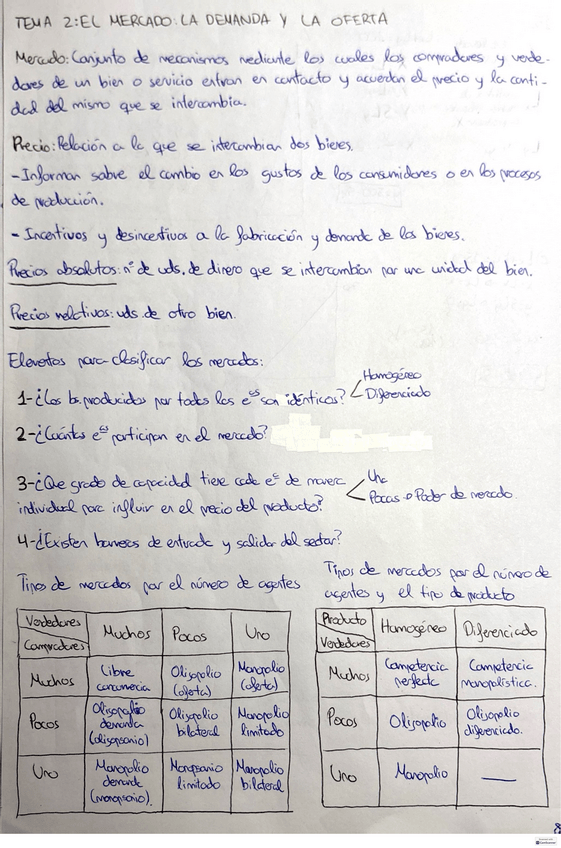 TEMA 2: EL MERCADO: LA DEMANDA Y LA OFERTA
Mercado: Conjunto de mecanismos mediante los cuales los compradores y vende-
dores de un bien o servicio entran en contacto y acuerdan el precio y la canti-
dad del mismo que se intercambia.
Precio: Relación a la que se intercambian dos bienes.
-Informan sobre el cambio en los gustos de los consumidores o en los procesos
de producción.
- Incentivos y desincentivos a la fabricación y demanda de los bienes.
Precios absolutos: nº de uds. de dinero que se intercambian por una unidad del bien.
Precios relativos: uds. de otro bien.
Elementos para clasificar los mercados:
1-¿Los bs. producidos por todas las eᵃˢ son idénticos? Homogéneo
Diferenciado
2-¿Cuántas eᵃˢ participan en el mercado?
3-¿Que grado de capacidad tiene cada eᵃ de manera Una
individual para influir en el precio del producto? Pocas → Poder de mercado.
4-¿Existen barreras de entrada y salida del sector?
Tipos de mercados por el número de agentes
Vendedores
Compradores
Muchos Pocos Uno
Muchos Libre concurrencia Oligopolio (oferta) Monopolio (oferta)
Pocos Oligopolio demanda (oligopsonio) Oligopolio bilateral Monopolio limitado
Uno Monopolio demanda (monopsonio). Monopsonio limitado Monopolio bilateral
Tipos de mercados por el número de
agentes y el tipo de producto
Producto
Vendedores
Homogéneo Diferenciado
Muchos Competencia perfecta Competencia monopolística.
Pocos Oligopolio Oligopolio diferenciado.
Uno Monopolio —
8